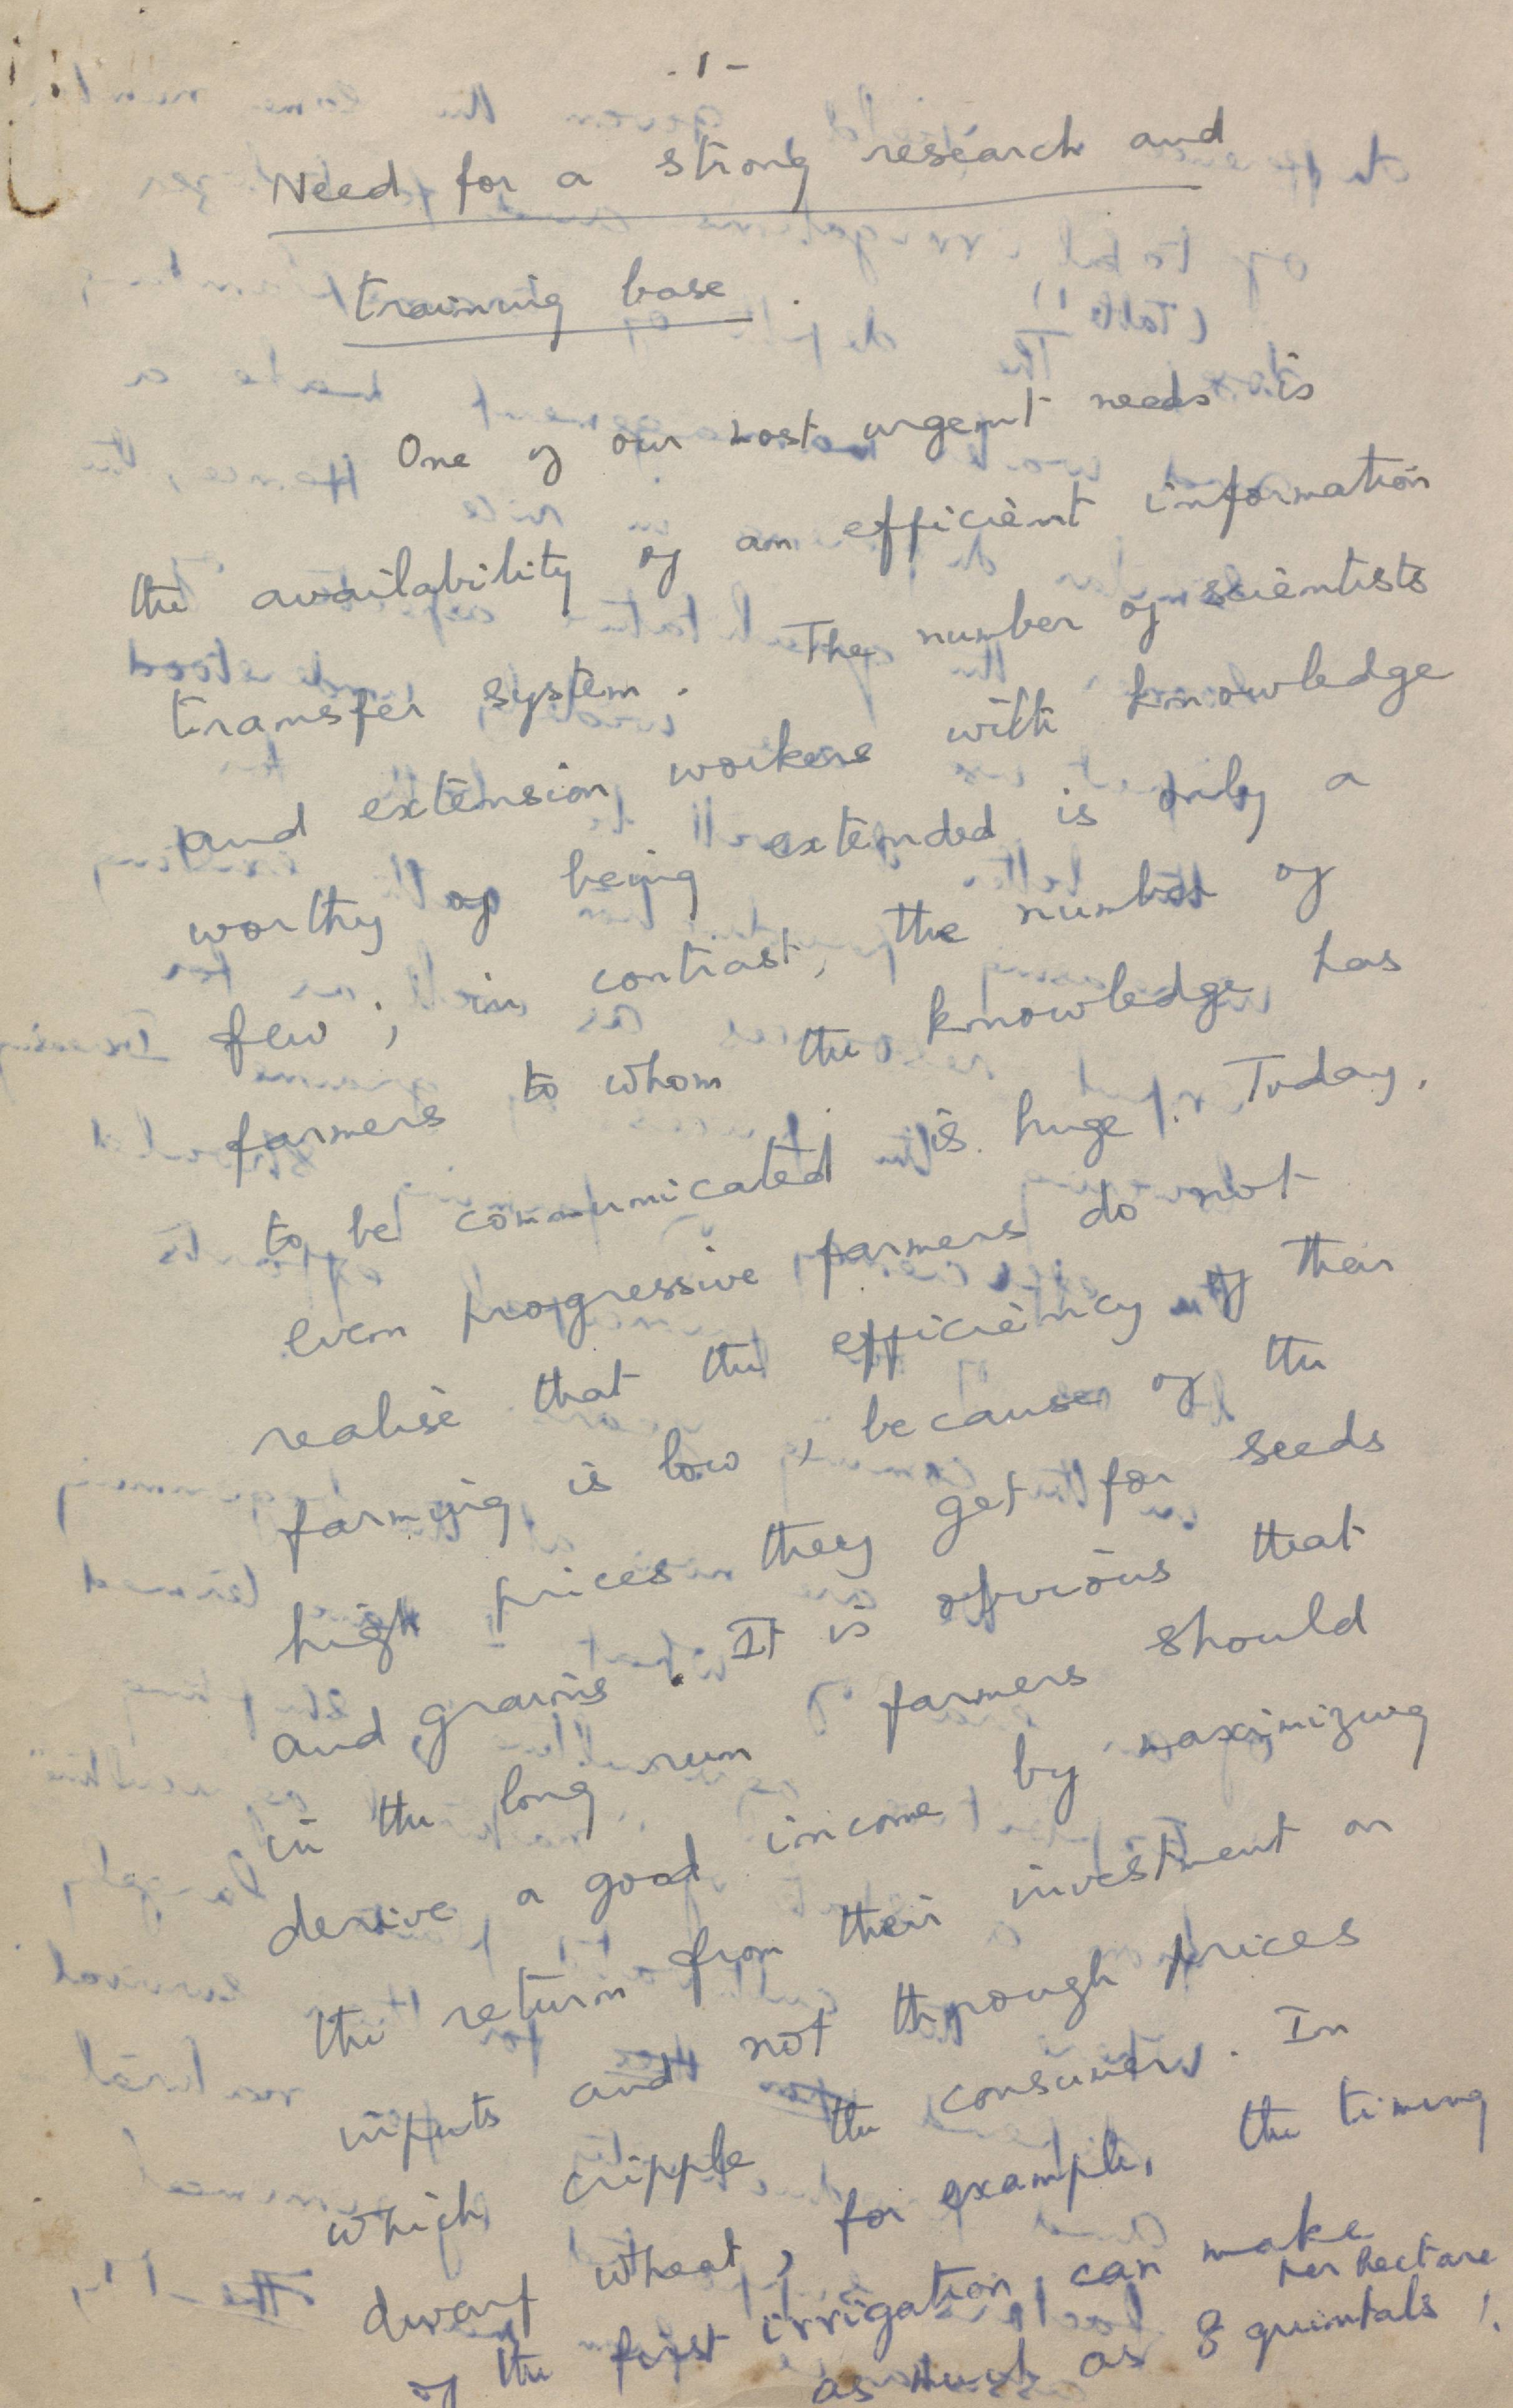 - 1 -
Need for a strong research and
training base.
One of our most urgent needs is
the availability of an efficient information
transfer system. The number of scientists
and extension workers with knowledge
worthy of being extended is only a
few; in contrast, the number of
farmers to whom the knowledge has
to be communicated is huge. Today,
even progressive farmers do not
realise that the efficiency of their
farming is low, because of the
high prices they get for seeds
and grains. It is obvious that
in the long run farmers should
derive a good income by maximizing
the return from their investment on
inputs and not through prices
which cripple the consumers. In
dwarf wheat, for example, the timing
of the first irrigation can make
per hectare
as much as 8 quintals